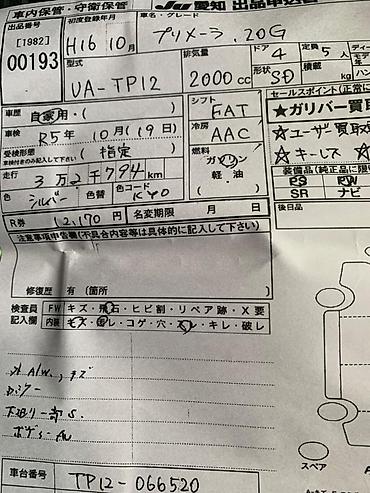 車内保管・守衛保管 JU愛知 出品申込書
出品番号 初度登録年月 車名・グレード
[1982] 00193 H16 10月 プリメーラ. 20G
型式 排気量 ドア 4 定員 5人
UA-TP12 2000cc 形状 SD 積載 kg
車歴 自家用・( ) シフト FAT セールスポイント(正常に
車検 R5年 10月(19日) 冷房 AAC ★ガリバー買取
受検形態 (指定) 燃料 ★ユーザー買取
車検付きのみ記入して下さい ガソリン 軽油 ★キーレス
走行 3万2千794km 装備品(純正品に限
色 シルバー 色替 色コード KY0 PS PW
SR ナビ
R券 12,170円 名変期限 月 日 後日品
注意事項申告欄(不具合内容等は具体的に記入して下さい)
修復歴 有 (箇所
検査員 FW キズ・飛石・ヒビ割・リペア跡・X要
記入欄 内装 キズ・汚レ・コゲ・穴・スレ・キレ・破レ
A/W キズ
下廻り一部S.
スペア
車台番号 TP12-066520